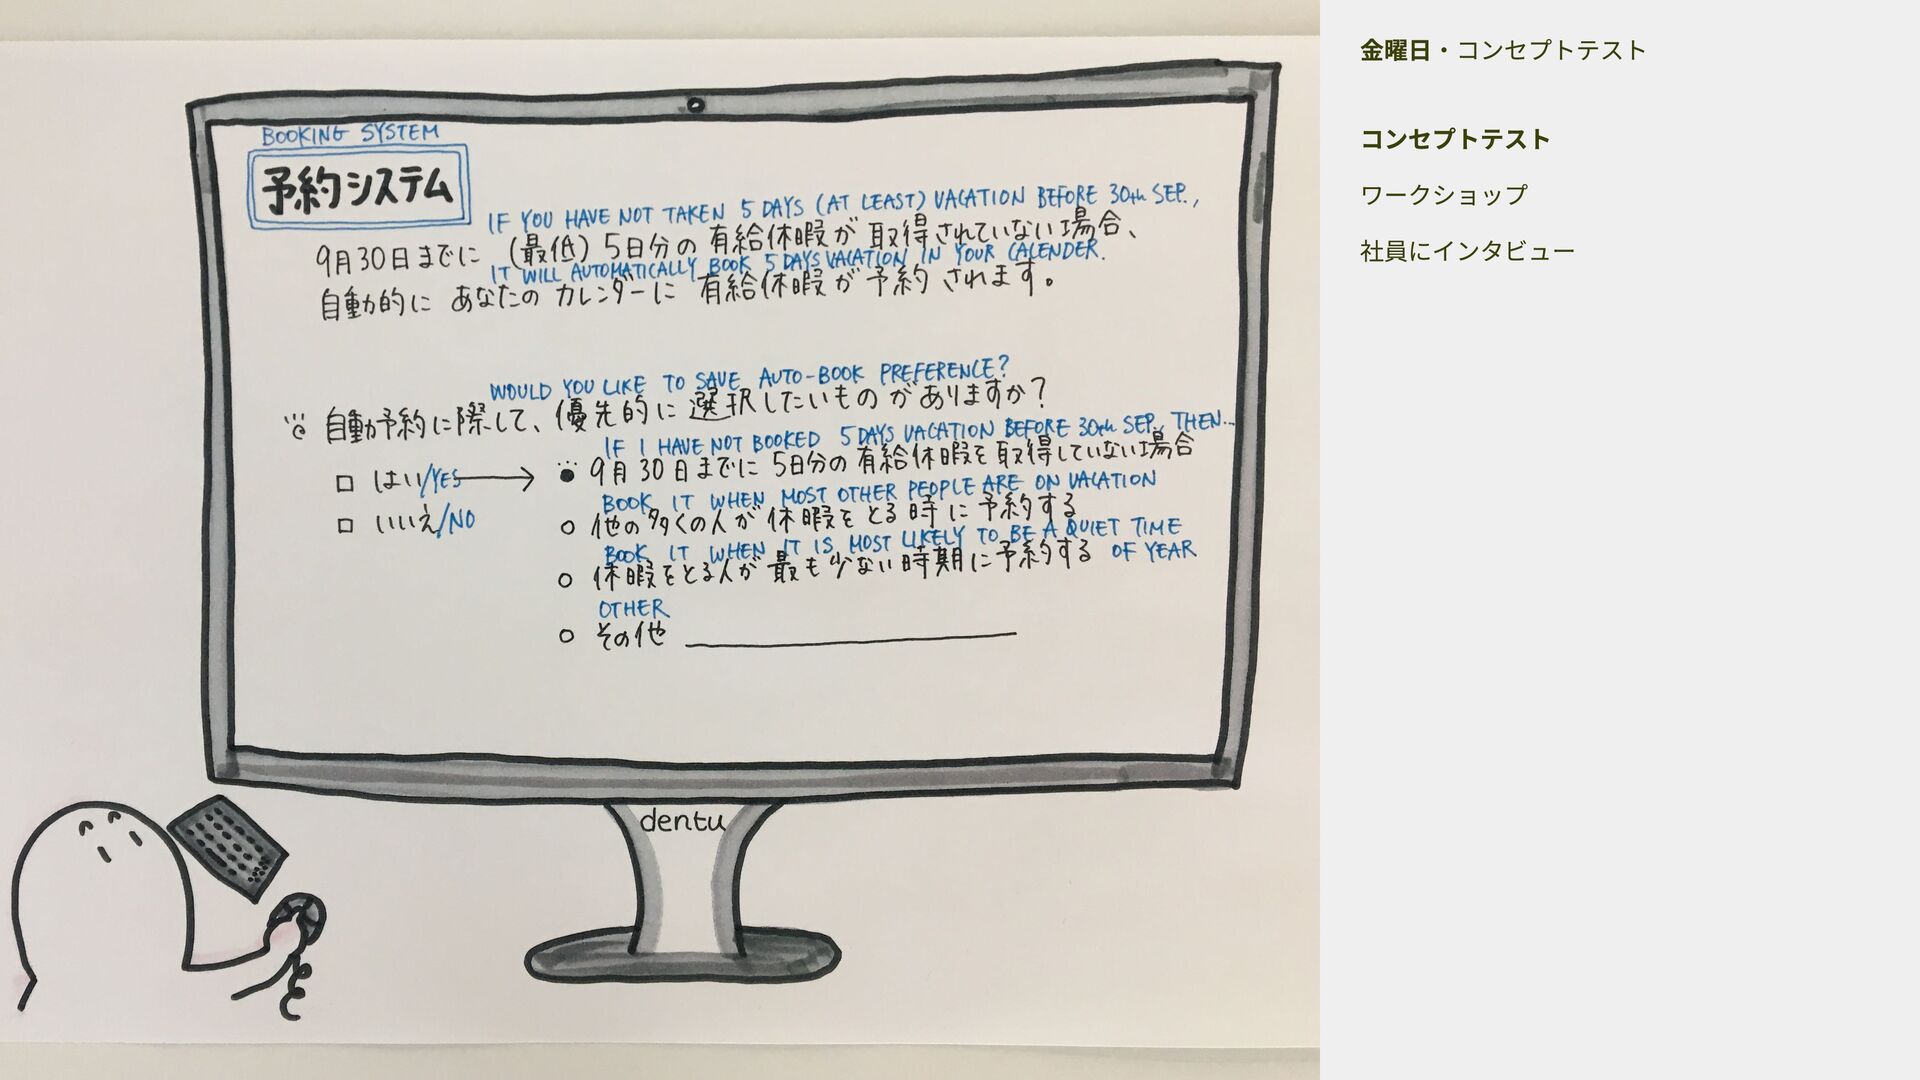 BOOKING SYSTEM
予約システム
IF YOU HAVE NOT TAKEN 5 DAYS (AT LEAST) VACATION BEFORE 30th SEP.,
9月30日までに (最低) 5日分の 有給休暇が 取得されていない場合、
IT WILL AUTOMATICALLY BOOK 5 DAYS VACATION IN YOUR CALENDER.
自動的に あなたの カレンダーに 有給休暇が 予約 されます。
WOULD YOU LIKE TO SAVE AUTO-BOOK PREFERENCE?
自動予約に際して、優先的に 選択したいもの がありますか?
IF I HAVE NOT BOOKED 5 DAYS VACATION BEFORE 30th SEP., THEN...
はい/YES
9月 30 日までに 5日分の 有給休暇を 取得していない場合
BOOK IT WHEN MOST OTHER PEOPLE ARE ON VACATION
いいえ/NO
他の多くの人が 休暇を とる時に 予約する
BOOK IT WHEN IT IS MOST LIKELY TO BE A QUIET TIME
OF YEAR
休暇をとる人が 最も少ない時期に予約する
OTHER
その他
dentu
金曜日・コンセプトテスト
コンセプトテスト
ワークショップ
社員にインタビュー